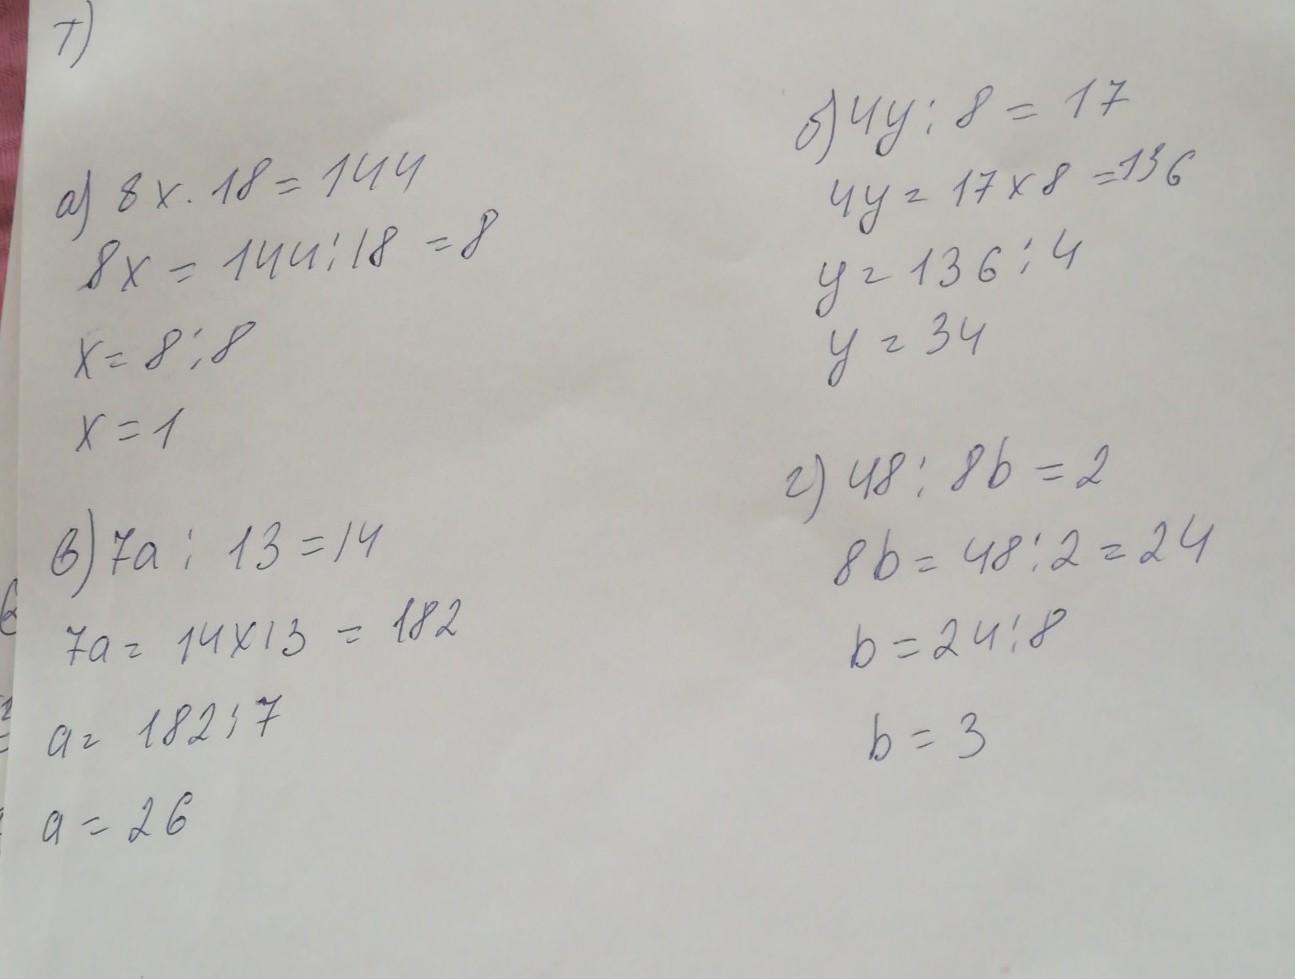 1)
а) 8x · 18 = 144
8x = 144 : 18 = 8
x = 8 : 8
x = 1
б) 4y : 8 = 17
4y = 17 x 8 = 136
y = 136 : 4
y = 34
в) 7a : 13 = 14
7a = 14 x 13 = 182
a = 182 : 7
a = 26
г) 48 : 8b = 2
8b = 48 : 2 = 24
b = 24 : 8
b = 3